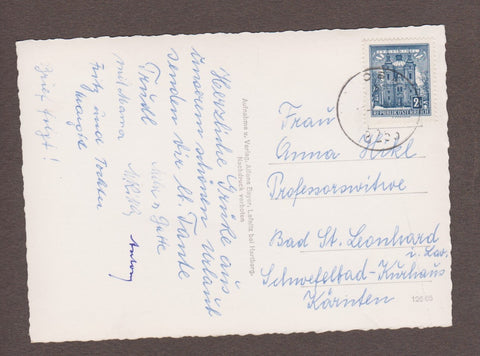 Herzliche Grüße aus
unserem schönen Urlaub
senden dir lb. Tante
Trudl
mit Mama
Fritz und Tochter
Brief folgt!
Aufnahme u. Verlag, Alfons Bayer, Lafnitz bei Hartberg.
Nachdruck verboten
REPUBLIK ÖSTERREICH
Frau
Anna
Professorswitwe
Bad St. Leonhard
i. Lav.
Schwefelbad-Kurhaus
Kärnten